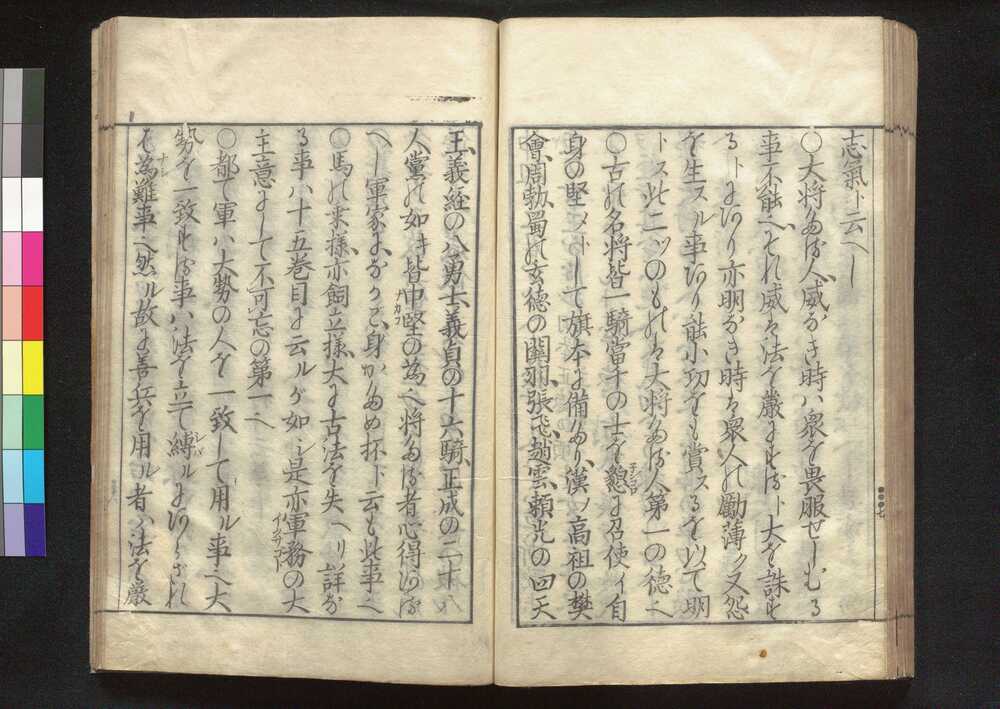 志氣ト云ヘし
〇大将たる人威なき時ハ衆を畏服せしむる
事不能ヘそれ威ハ法を嚴にするト大を誅す
るトにあり亦明なき時ハ衆人の勵薄ク又怨
を生スル事あり能小功をも賞スるを以て明
トス此二ツのものハ大将たる人第一の徳ヘ
〇古の名将皆一騎當千の士を懇に召使イ自
身の堅メトして旗本に備たり漢ノ高祖の樊
會周勃蜀の玄徳の關羽張飛趙雲頼光の四天
王義経の八勇士義貞の十六騎正成の二十八
人黨の如き皆中堅の為ヘ将たる者心得ある
へし軍家におゐて身かため抔ト云も此事ヘ
〇馬の乗様亦飼立様大に古法を失ヘリ詳な
る事ハ十五巻目に云ルか如シ是亦軍務の大
主意にして不可忘の第一ヘ
〇都て軍ハ大勢の人を一致して用ル事ヘ大
勢を一致する事ハ法を立て縛ルにあらされ
は為難事ヘ然ル故に善兵を用ル者ハ法を嚴
七